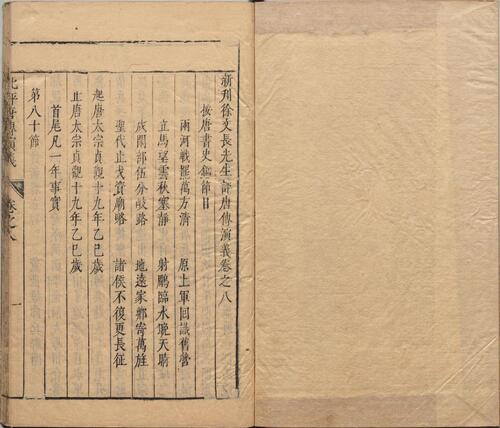 新刋徐文長先生評唐傳演義卷之八
按唐書史鑑節目
兩河戰罷萬方清 原上軍回識舊營
立馬望雲秋塞靜 射鵰臨水晩天晴
戍閑部伍分岐路 地遠家鄉寄萬旌
聖代止戈資廟略 諸侯不復更長征
起唐太宗貞觀十九年乙巳歲
止唐太宗貞觀十九年乙巳歲
首尾凡一年事實
第八十節
卷之八
一